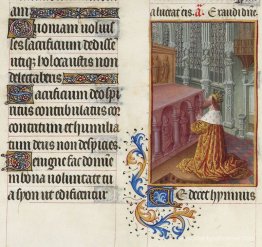 am
Quoniam voluiſ
ſes ſacrificium dediſſē
utique holocauſtis non
delectaberis
Sacrificium deo ſpi
ritus contribulatus cor
contritum et humilia
tum deus non deſpicies
Benigne fac domine
in bona voluntate tu
a ſyon ut edificentur
a. Exaudi dñe
Te decet hymnus